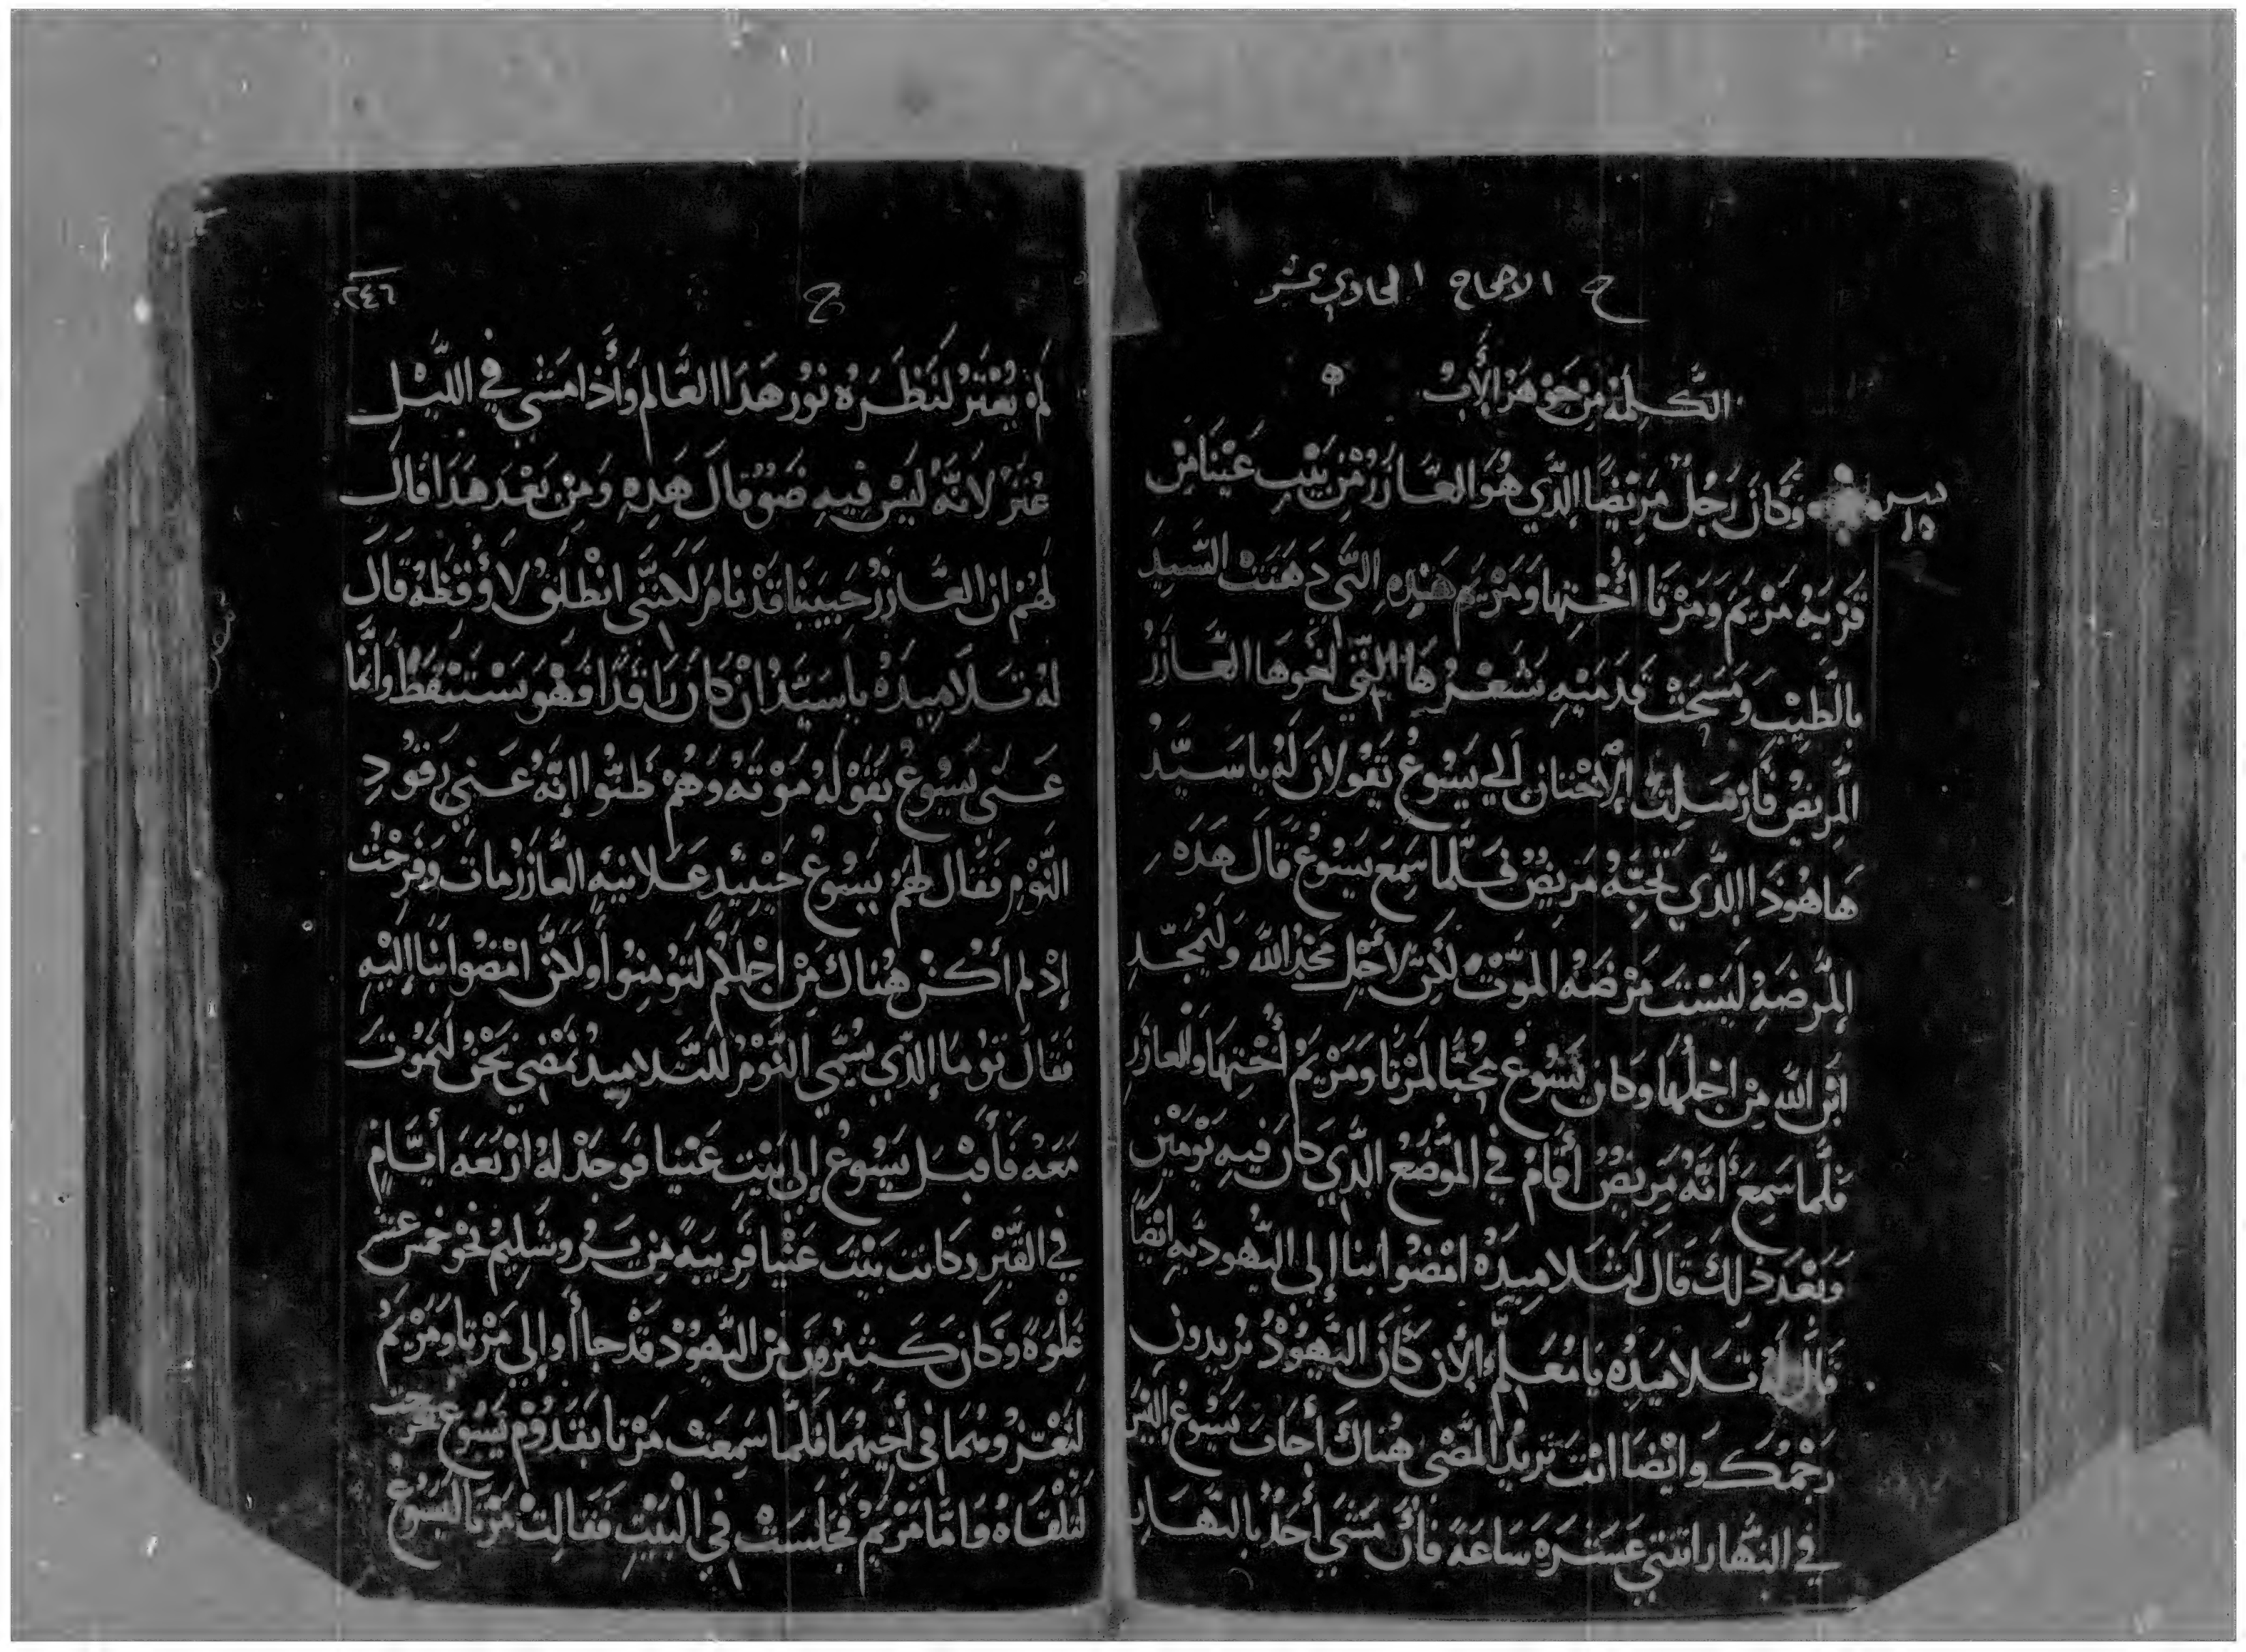 ح الاصحاح الحادي عشر
الكلمة من جوهر الأب
سير
١٥
وَكَانَ رَجُلٌ مَرِيْضًا الِدَّي هُوَ العَازَرْ مِنْ بَيْتِ عَنْيَنا مَنْ
قَرْيَةِ مَرْيَمَ وَمَرْتَا أُخْتِها وَمَرْيَم هَذِهِ التَّي دَهَنَتْ السَّيِدَ
بالَطيْب وَمَسَحَتْ قَدَمَيْهِ بشَعْرِهَا التَّي اخوهَا العَازَرْ
المَرِيضْ فَارْسَلِتْ الإخْتان إلي يَسُوعْ تَقولان لَهُ ياسَيَّدْ
هَاهُودَا الِدَّي تُحِبَّهُ مَرِيضٌ فَلَّما سَمِعَ يَسُوعْ قَالَ هَدَهِ
المرضَهِ ليَسْتَ مَرْضَهُ المَوْت لَكِنْ لأَجْلِ مَجْدِ الله وَليُمَجَّدِ
ابْن الله مِنْ اجْلِها وَكان يَسُوعْ مُحُبًّا لمَرْتَا وَمَرْيَمْ أُخْتِهَا وَالعازَرْ
فلَّما سَمِعَ أَنَّهُ مَرِيضْ أَقَامْ فَي المَوْضَعْ الِدَّي كَانَ فيِهِ يَوْمَيْنِ
وَبَعْدَ ذلِكَ قَالَ لتَلَامِيدَهُ امْضُوا بنا إلى اليَهُوديَّهِ ايْضًا
قَالَ لَهُ تَلَاميَدُه يَا مُعَلِّمْ الأن كَانَ اليَهُوْدْ يُريدون
رَجْمَكَ وَايْضَا انْتَ تَريْدْ المَضْي هُناكَ أَجابَ يَسُوعْ إليْسَ
فَي النَّهار اثنتي عَشَرَهَ سَاعَهَ فانْ مَشَي أَحَدْ بالنَهَار
٢٤٦
ح
لمَ يْعْتَرْ لنَظَرَهُ نوْر هَدَا العَّالم وَأَذا مَشَي فَي اللَيْلِ
عُتَرْ لَانَّهُ ليَسْ فِيهِ ضَوْ قالَ هَدِهِ وَمِنْ بَعْدَ هَدَا قَالَ
لهُمْ ان العَازَرْ حَبِيبَنا قَدْ نَامَ لَكنَّني انْطَلَقْ لأُوقَظَهُ قَالَ
لهُ تَلَامِيدَهُ ياسَيّدْ انْ كَانَ رَاقَدًا فَهْوَ يَسْتَيْقظْ وَانَّما
عَنَي يَسُوعْ بقَوْلهُ مَوْتَهُ وَهُمْ ظَنُّوا إِنَّهُ عَنيِ رَقودِ
النَّوْمِ فَقال لهُمْ يَسُوعْ حَيْنَيِد عَلَانِيَةِ العَّازَرْ مات وَفَرِحْتْ
إذْ لم أكُنْ هُناكَ مِنْ اجْلِكُمْ لتَوُمِنوُا وَلكَنْ امْضُوا بنَا إليْهِ
فَقَالَ تُومَا إلدَّي يسُمَّي التَّوْمْ للتَلَامِيدْ نمَضْي نَحْنُ لنَمُوْتَ
مَعَهُ فَأقْبَل يَسُوعْ إلى بَيْتِ عَنْيا فَوَجَدْ لهُ ارْبَعَهَ أَيَّامٍ
في القَبْرِ وَكانَت بَيْتَ عَنْيا قَرِيبَهً مِنْ يَرُوشَلِيمْ نَحْوَ خمسَ عشَرْ
غَلْوَةً وَكَانَ كَثيْرُونَ مَنْ اليَهُوْدْ قَدْ جاأوا إلي مَرْتا وَمَرْيَمْ
ليَعْزوُهُمَا في أَخِيهُمَا فَلَّما سَمِعَتْ مَرْتا بقَدُوْمْ يَسُوعْ خرجَت
لتَلْقَاهُ وَامَّا مَرْيَمْ فَجَلَسَتْ فِي الْبَيْتِ فَقَالتْ مَرْتا ليَسُوعْ